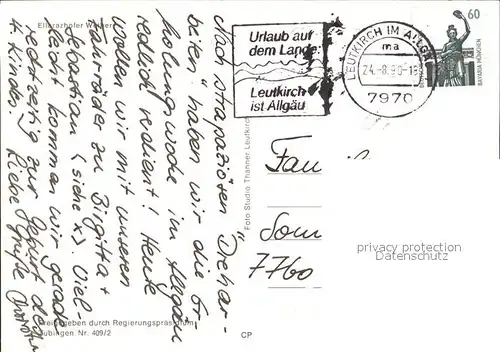 Ellerazhofer Weiher
Nach strapaziösen "Drehar-
beiten" haben wir die Er-
holungswoche im Allgäu
redlich verdient! Heute
wollen wir mit unseren
Fahrrädern zu Birgitta +
Sebastian (siehe x). Viel-
leicht kommen wir gerade
rechtzeitig zur Geburt des
4. Kindes. Liebe Grüße
Freigegeben durch Regierungspräsidium
Tübingen Nr. 409/2
CP
Foto Studio Thanner Leutkirch
Urlaub auf
dem Lande:
Leutkirch
ist Allgäu
LEUTKIRCH IM ALLGÄU
ma
24.-8.90-18
7970
60
BAVARIA MÜNCHEN
Fam
Som
7760
privacy protection
watermark